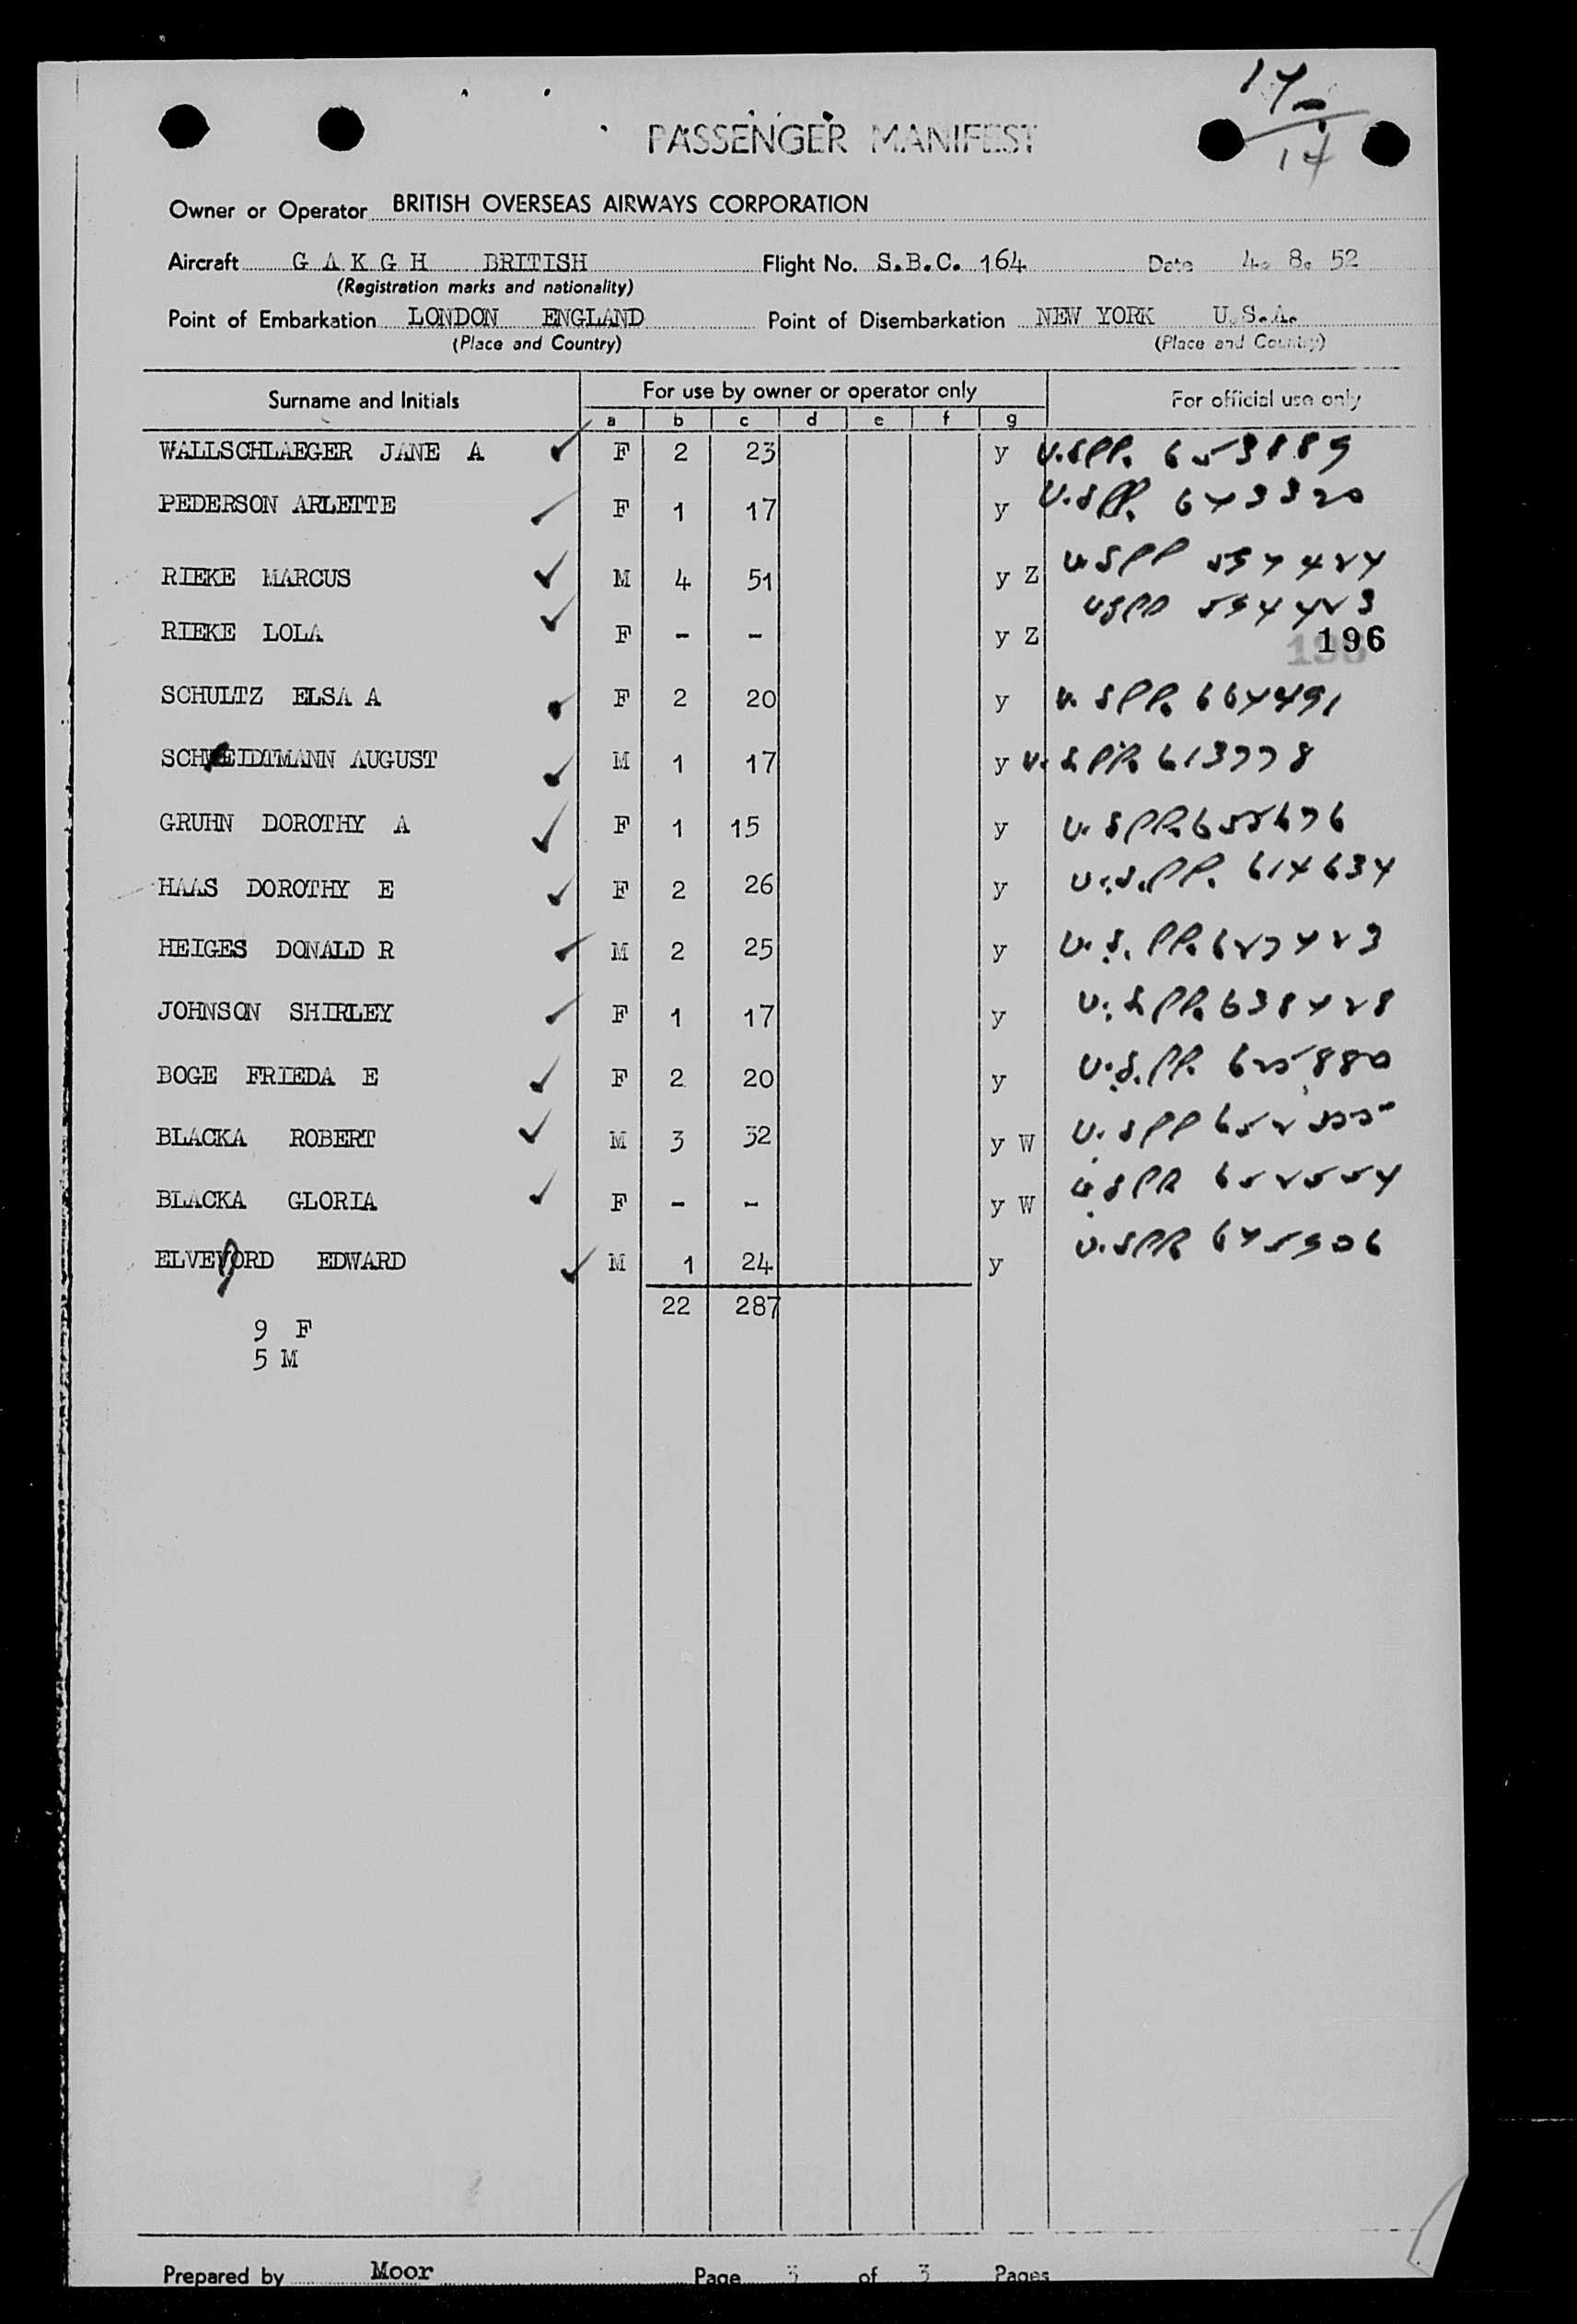 17
14
PASSENGER MANIFEST
Owner or Operator BRITISH OVERSEAS AIRWAYS CORPORATION
Aircraft G A K G H BRITISH Flight No. S.B.C. 164 Date 4. 8. 52
(Registration marks and nationality)
Point of Embarkation LONDON ENGLAND Point of Disembarkation NEW YORK U.S.A.
(Place and Country) (Place and Country)
Surname and Initials For use by owner or operator only For official use only
a b c d e f g
WALLSCHLAEGER JANE A ✓ F 2 23 y U.S.PP. 653889
PEDERSON ARLETTE ✓ F 1 17 y U.S.PP. 643320
RIEKE MARCUS ✓ M 4 51 y Z U.S.PP
RIEKE LOLA ✓ F - - y Z USPP
196
SCHULTZ ELSA A ✓ F 2 20 y U.S.PP. 664491
AUGUST ✓ M 1 17 y U.S.PP. 613778
GRUHN DOROTHY A ✓ F 1 15 y U.S.PP. 655676
HAAS DOROTHY E ✓ F 2 26 y U.S.PP. 614634
HEIGES DONALD R ✓ M 2 25 y U.S.PP. 627423
JOHNSON SHIRLEY ✓ F 1 17 y U.S.PP. 638428
BOGE FRIEDA E ✓ F 2 20 y U.S.PP. 625880
BLACKA ROBERT ✓ M 3 32 y W U.S.PP
BLACKA GLORIA ✓ F - - y W U.S.PP. 652554
EDWARD ✓ M 1 24 y U.S.PP. 645906
22 287
9 F
5 M
Prepared by Moor Page 3 of 3 Pages